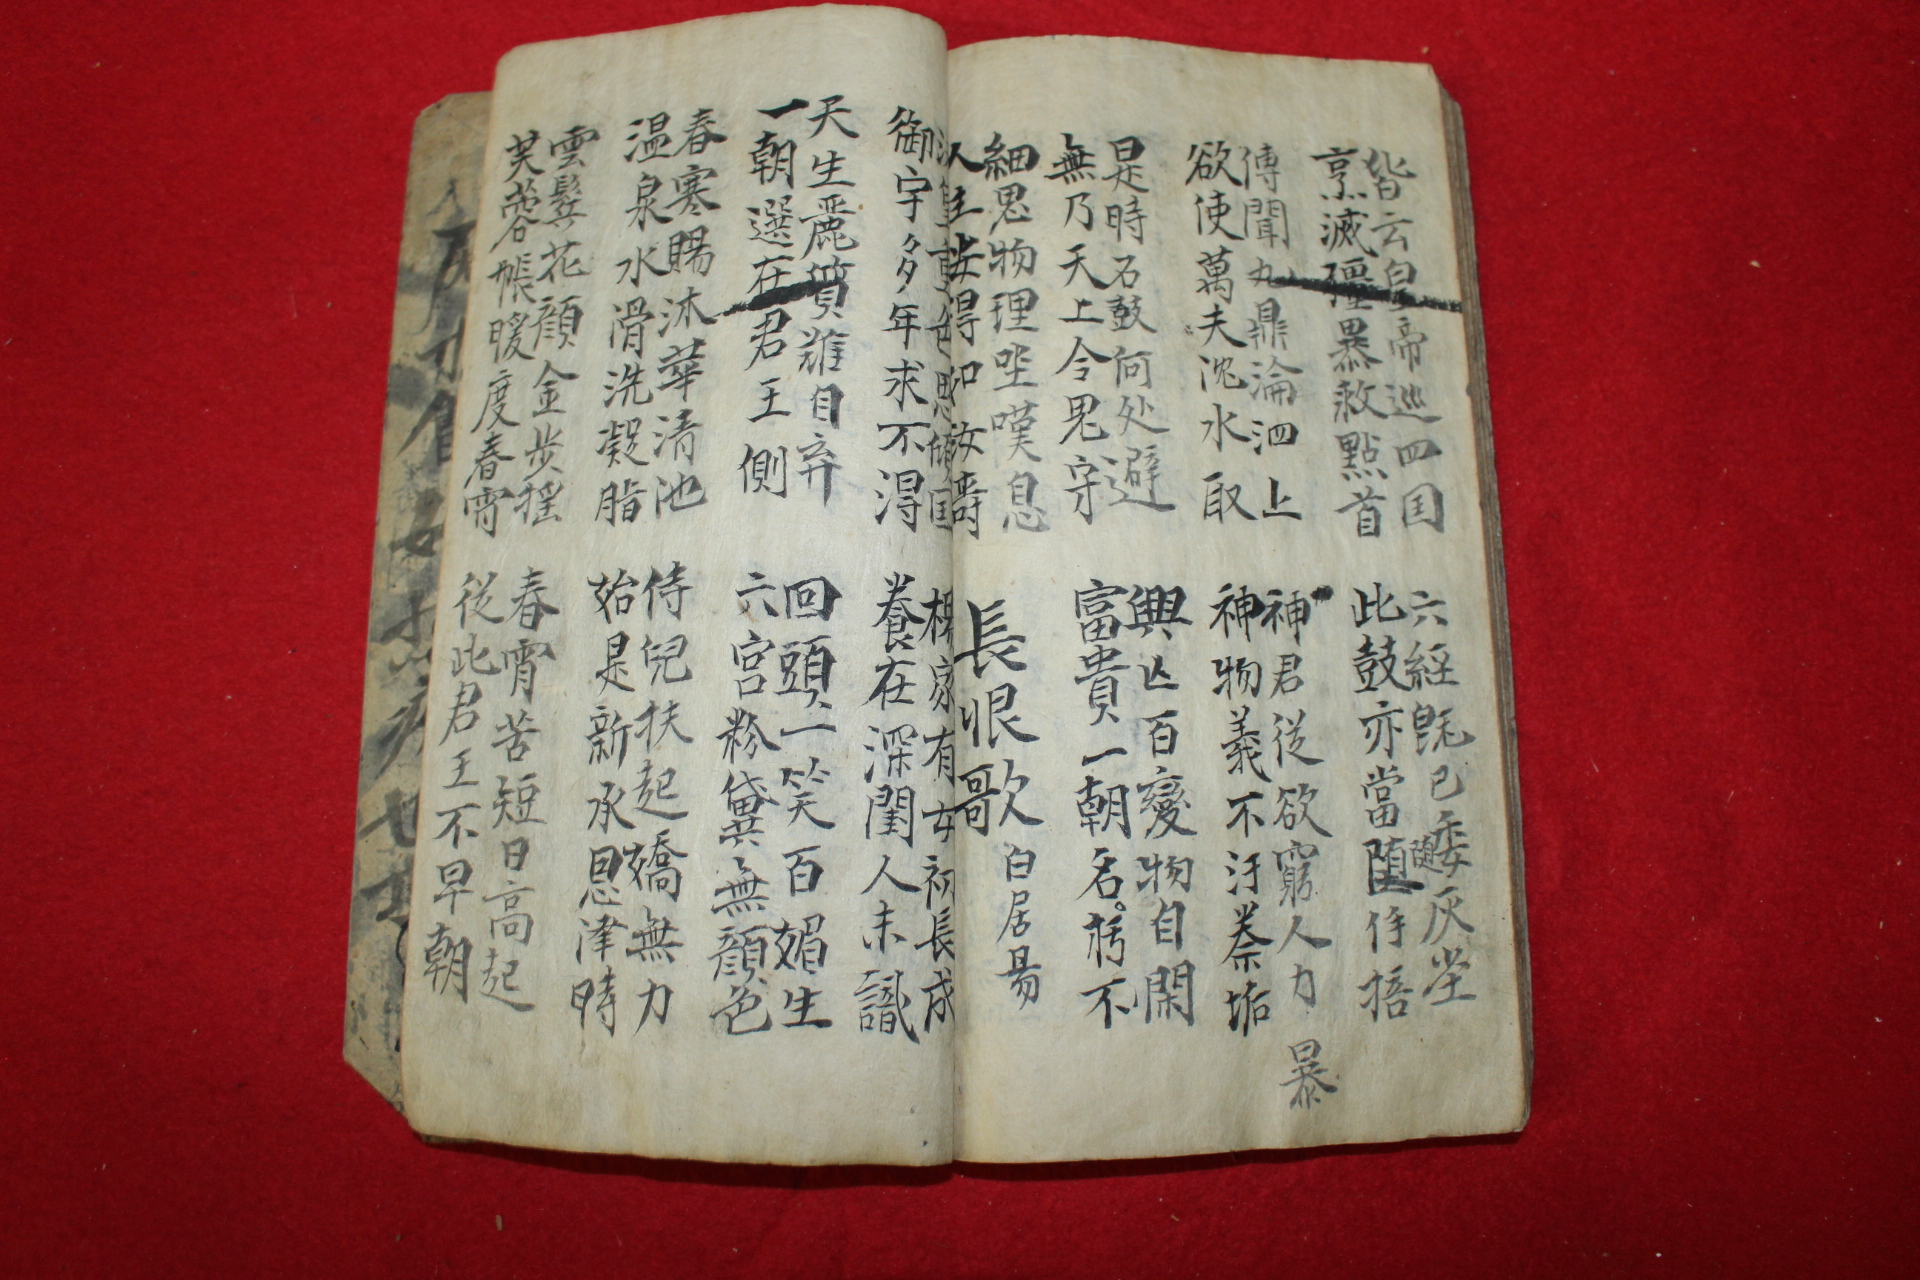 皆云皇帝巡四国
烹滅彊暴救黔首
六經旣已委灰塵
此鼓亦當
傳聞九鼎淪泗上
欲使萬夫沈水取
神君從欲窮人力
暴
神物義不汙秦垢
是時石鼓何处避
無乃天上令鬼守
興亡百變物自閑
富貴一朝名朽不
細思物理坐嘆息
人生安得如汝壽
長恨歌 白居易
重色思傾国
御宇多年求不淂
楊家有女初長成
養在深閨人未識
天生麗質難自弃
一朝選在君王側
回頭一笑百媚生
六宮粉黛無顔色
春寒賜沐華清池
温泉水滑洗凝脂
侍兒扶起嬌無力
始是新承恩津時
雲鬂花顔金步摇
芙蓉帳暖度春宵
春宵苦短日高起
從此君王不早朝